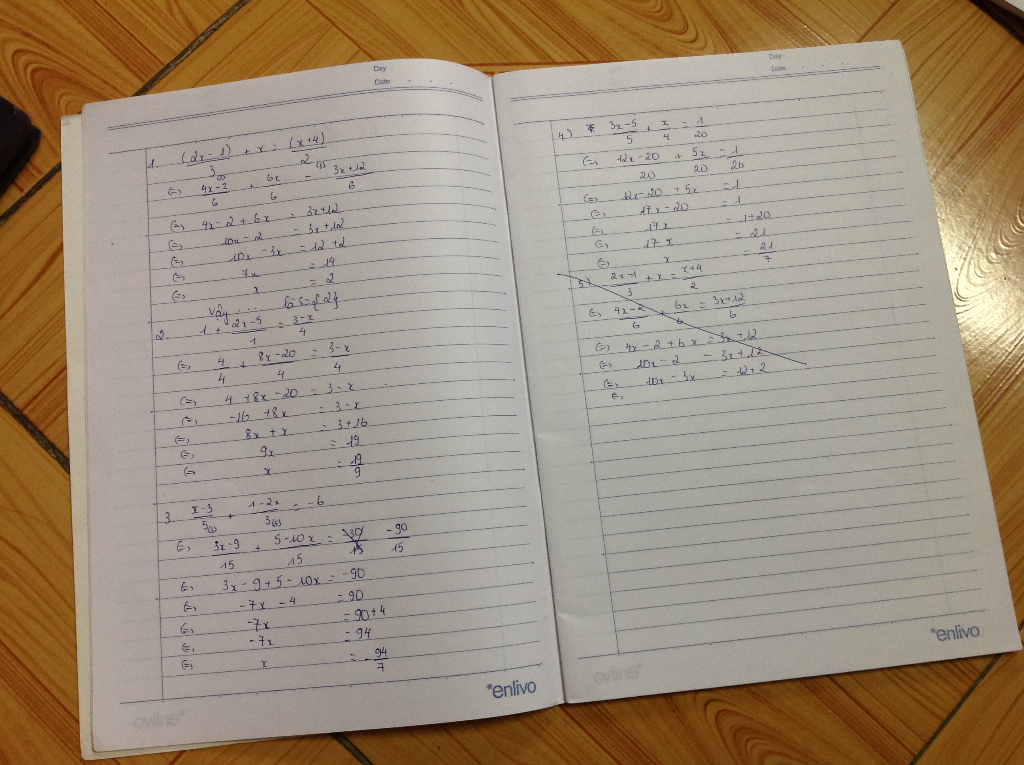 Day
Date
1. (2x-1)/3(2) + x = (x+4)/2(3)
(=) 4x-2/6 + 6x/6 = 3x+12/6
(=) 4x-2+6x = 3x+12
(=) 10x-2 = 3x+12
(=) 10x-3x = 12+2
(=) 7x = 14
(=) x = 2
Vậy .... S={2}
2. 1 + 2x-5/1 = 3-x/4
(=) 4/4 + 8x-20/4 = 3-x/4
(=) 4+8x-20 = 3-x
(=) -16+8x = 3-x
(=) 8x+x = 3+16
(=) 9x = 19
(=) x = 19/9
3. x-3/5(3) + 1-2x/3(5) = -6
(=) 3x-9/15 + 5-10x/15 = -30/15 -90/15
(=) 3x-9+5-10x = -90
(=) -7x-4 = 90
(=) -7x = 90+4
(=) -7x = 94
(=) x = -94/7
oviline*
*enlivo
Day
Date
4) * 3x-5/5 + x/4 = 1/20
(=) 12x-20/20 + 5x/20 = 1/20
(=) 12x-20+5x = 1
(=) 17x-20 = 1
(=) 17x = 1+20
(=) 17x = 21
(=) x = 21/7
5) 2x-1/3 + x = x+4/2
(=) 4x-2/6 + 6x/6 = 3x+12/6
(=) 4x-2+6x = 3x+12
(=) 10x-2 = 3x+12
(=) 10x-3x = 12+2
(=)
oviline*
*enlivo